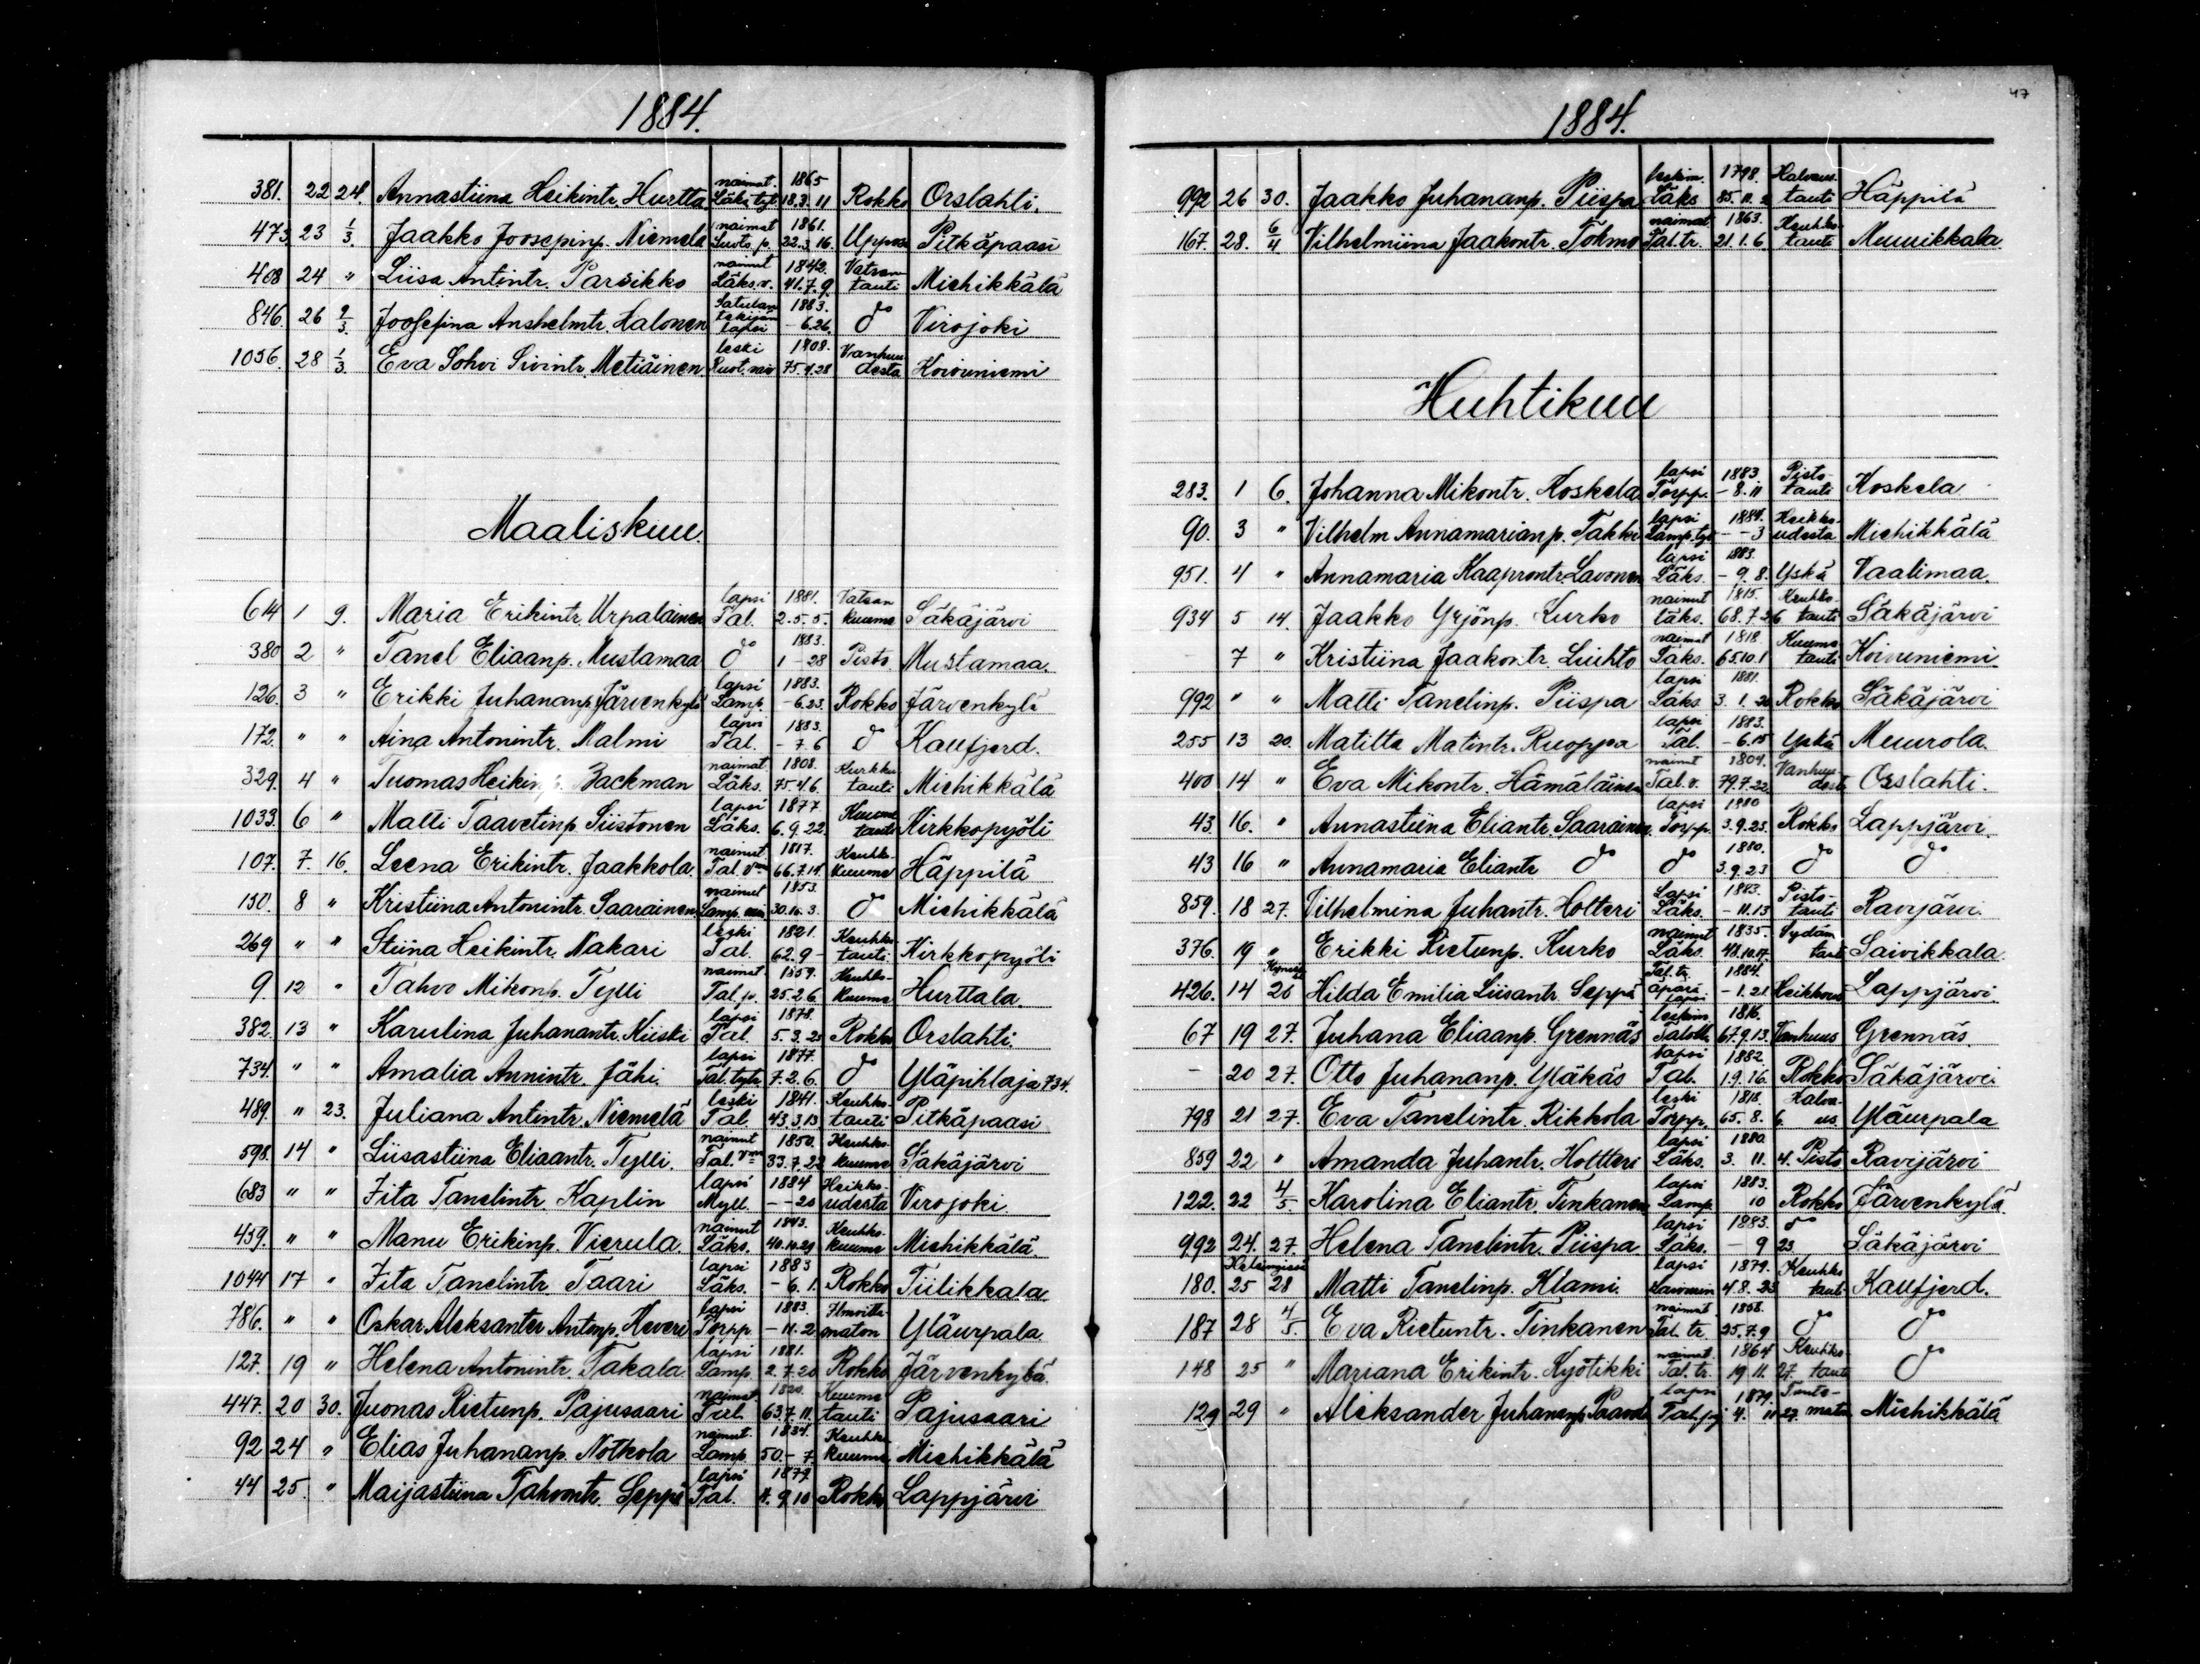 47
1884.
381. 22 24. Annastiina Heikintr. Hurtta naimat. Läks. tyt 1865 18.3.11 Rokko Orslahti.
473 23 1/3. Jaakko Joosepinp. Niemelä naimat 1861. 22.3.16. Uppos Pitkäpaasi
408 24 " Liisa Antintr. Parsikko naimat Läks. v. 1842. 41.7.9. Vatsan tauti Miehikkälä
846. 26 9/3. Joosefina Anshelmtr. Halonen Satulan tekijän lapsi 1883. - 6.26. do Virojoki
1056. 28 1/3. Eva Sohvi Sivintr. Metiäinen leski 1808. 75.4.28 Vanhuudesta Koivuniemi
Maaliskuu.
614 1 9. Maria Erikintr. Urpalainen lapsi Tal. 1881. 2.5.5. Vatsan kuume Säkäjärvi
380 2 " Tanel Eliaanp. Mustamaa do 1883. 1 - 28 Pisto Mustamaa.
126. 3 " Erikki Juhananp. Järvenkylä lapsi Lamp. 1883. - 6.23. Rokko Järvenkylä
172. " " Aina Antonintr. Malmi lapsi Tal. 1883. - 7.6 do Kaufjerd.
329. 4 " Tuomas Heikinp. Backman naimat Läks. 1808. 75.4.6. Kurkku tauti Miehikkälä
1033. 6 " Matti Taavetinp. Siistonen lapsi Läks. 1877. 6.9.22. Kuume tauti Kirkkopyöli
107. 7. 16. Leena Erikintr. Jaakkola. naimat Tal. vmo 1817. 66.7.14. Keuhko-kuume Häppilä
150. 8 " Kristiina Antonintr. Saarainen naimat 1853. 30.10.3. do Miehikkälä
269 " " Stiina Heikintr. Nakari leski Tal. 1821. 62.9 - Keuhko-tauti Kirkkopyöli
9. 12 " Tahvo Mikonp. Tylli naimat Tal. p. 1859. 25.2.6 Keuhko-kuume Hurttala.
382. 13 " Karulina Juhanantr. Niiski lapsi Tal. 1878. 5.3.25 Rokko Orslahti.
734. " " Amalia Annintr. Jähi. lapsi Tal. tytr 1877. 7.2.6. do Yläpihlaja 734.
489. " 23. Juliana Antintr. Niemelä leski Tal 1841. 43.3.13 Keuhko-tauti Pitkäpaasi
598. 14 " Liisastiina Eliaantr. Tylli. naimat Tal. vmo 1850. 33.7.22 Keuhko-kuume Säkäjärvi
683 " " Fita Tanelintr. Kaplin lapsi Myll. 1884 - - 20 Heikko-udesta Virojoki.
459. " " Manu Erikinp. Vierula. naimat Läks. 1843. 40.10.29 Keuhko-kuume Miehikkälä
1044 17 " Fita Tanelintr. Taari lapsi Läks. 1883 - 6.1. Rokko Tiilikkala.
786. " " Oskar Aleksanter Antinp. Heveri lapsi Torpp. 1883. - 11.2 Ilmoittamaton Yläurpala
127. 19 " Helena Antonintr. Takala lapsi Lamp. 1881. 2.7.20 Rokko Järvenkylä.
447. 20 30. Juonas Rietunp. Pajusaari naimat Tal. 1820. 63.7.11. Kuume tauti Pajusaari
92 24 " Elias Juhananp. Notkola naimat. Lamp. 1834. 50. - 7. Keuhko kuume Miehikkälä
44 25. " Maijastiina Tahvontr. Seppä lapsi Tal. 1879. 4.9.10 Rokko Lappjärvi
1884.
992 26 30. Jaakko Juhananp. Piispa leskim. Läks 1798. Halvaus-tauti Häppilä
167. 28. 6/4 Vilhelmiina Jaakontr. Tohmo naimat Tal. tr. 1863. 21.1.6. Keuhko-tauti Muurikkala
Huhtikuu
283. 1 6. Johanna Mikontr. Koskela lapsi Torpp. 1883. - 8.11 Pisto-tauti Koskela
90. 3 " Vilhelm Annamarianp. Takki lapsi Lamp. tyt 1884. - - 3 Heikko-udesta Miehikkälä
951. 4 " Annamaria Kaaprontr. Lavonen lapsi Läks. 1883. - 9.8. Yskä Vaalimaa.
934 5 14. Jaakko Yrjönp. Kurko naimat Läks. 1815. 68.7.26 Keuhko-tauti Säkäjärvi
7 " Kristiina Jaakontr. Liuhto naimat Läks. 1818. 65.10.1 Kuume tauti Koivuniemi
992 " " Matti Tanelinp. Piispa lapsi Läks 1881. 3.1.20 Rokko Säkäjärvi
255 13 20. Matilta Matintr. Ruoppa lapsi Tal. 1883. - 6.15 Yskä Muurola.
400 14 " Eva Mikontr. Hämäläinen naimat Tal. v. 1804. 79.7.22. Vanhuudesta Orslahti.
43. 16. " Annastiina Eliantr. Saarainen lapsi Torpp. 1880 3.9.23. Rokko Lappjärvi.
43 16 " Annamaria Eliantr do do 1880. 3.9.23 do do
859. 18 27. Vilhelmina Juhantr. Holteri Lapsi Läks. 1883. - 11.13 Pisto-tauti Ravijärvi.
376. 19 " Erikki Rietunp. Kurko naimat Läks. 1835. Sydän tauti Saivikkala.
426. 14 26 Hilda Emilia Liisantr. Seppä Tal. tr. äpärä lapsi 1884. - 1.21 Heikkous Lappjärvi.
67 19 27. Juhana Eliaanp. Grennäs leskim 1816. 67.9.13. Vanhuus Grennäs
- 20 27. Otto Juhananp. Yläkäs lapsi Tal. 1882. 1.9.16. Rokko Säkäjärvi
798 21 27. Eva Tanelintr. Rikkola leski Torpp. 1818. 65.8.6 Halvaus Yläurpala
859 22 " Amanda Juhantr. Holtteri lapsi Läks. 1880 3.11.4. Pisto Ravijärvi
122. 22 4/5. Karolina Eliantr. Tinkanen lapsi Lamp. 1883. 10 Rokko Järvenkylä
992 24. 27. Helena Tanelintr. Piispa lapsi Läks. 1883. - 9 23 do Säkäjärvi
180. Helsingissä 25 28 Matti Tanelinp. Klami. lapsi 1879. 4.8.23 Keuhko tauti Kaufjerd.
187 28 4/5. Eva Rietuntr. Tinkanen naimat Tal. tr. 1858. 25.7.9 do do
148 25 " Mariana Erikintr. Kyötikki naimat. Tal. tr. 1864 19.11.27. Keuhko-tauti do
129 29 " Aleksander Juhananp. lapsi 1879. 4. 11 27. Miehikkälä